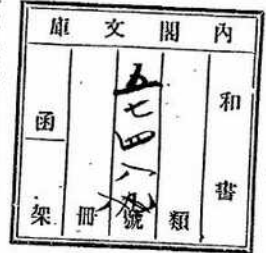 內閣文庫
和書
類
五七四八號
冊
函
架